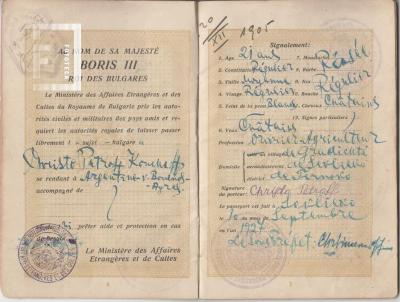 AU NOM DE SA MAJESTÉ
BORIS III
ROI DES BULGARES
Le Ministère des Affaires Etrangères et des
Cultes du Royaume de Bulgarie prie les auto-
rités civiles et militaires des pays amis et re-
quiert les autorités royales de laisser passer
librement l sujet bulgare
Christo Petroff
se rendant à Argentine-v. Buenos-
Ayres
accompagné de
prêter aide et protection en cas
Le Ministère des Affaires
Etrangères et de Cultes
20
XII 1905
Signalement:
1. Age 21 ans
2. Constitution Régulier
3. Taille Moyenne
4. Visage Régulier
5. Teint de la peau Blanc
6. Yeux Châtains
7. Moustaches Rasée
8. Barbe
9. Nez Régulier
10. Bouche
11. Cheveux Châtains
12. Signes particuliers
Profession Ouvrier-Agriculteur
Domicile
accoutumé de Sevlievo
de Tirnovo
Signature
du porteur Christo Petroff
Le passeport est fait à Sevlievo
le 10 de Septembre
en l'an 1927
Le Sous Préfet